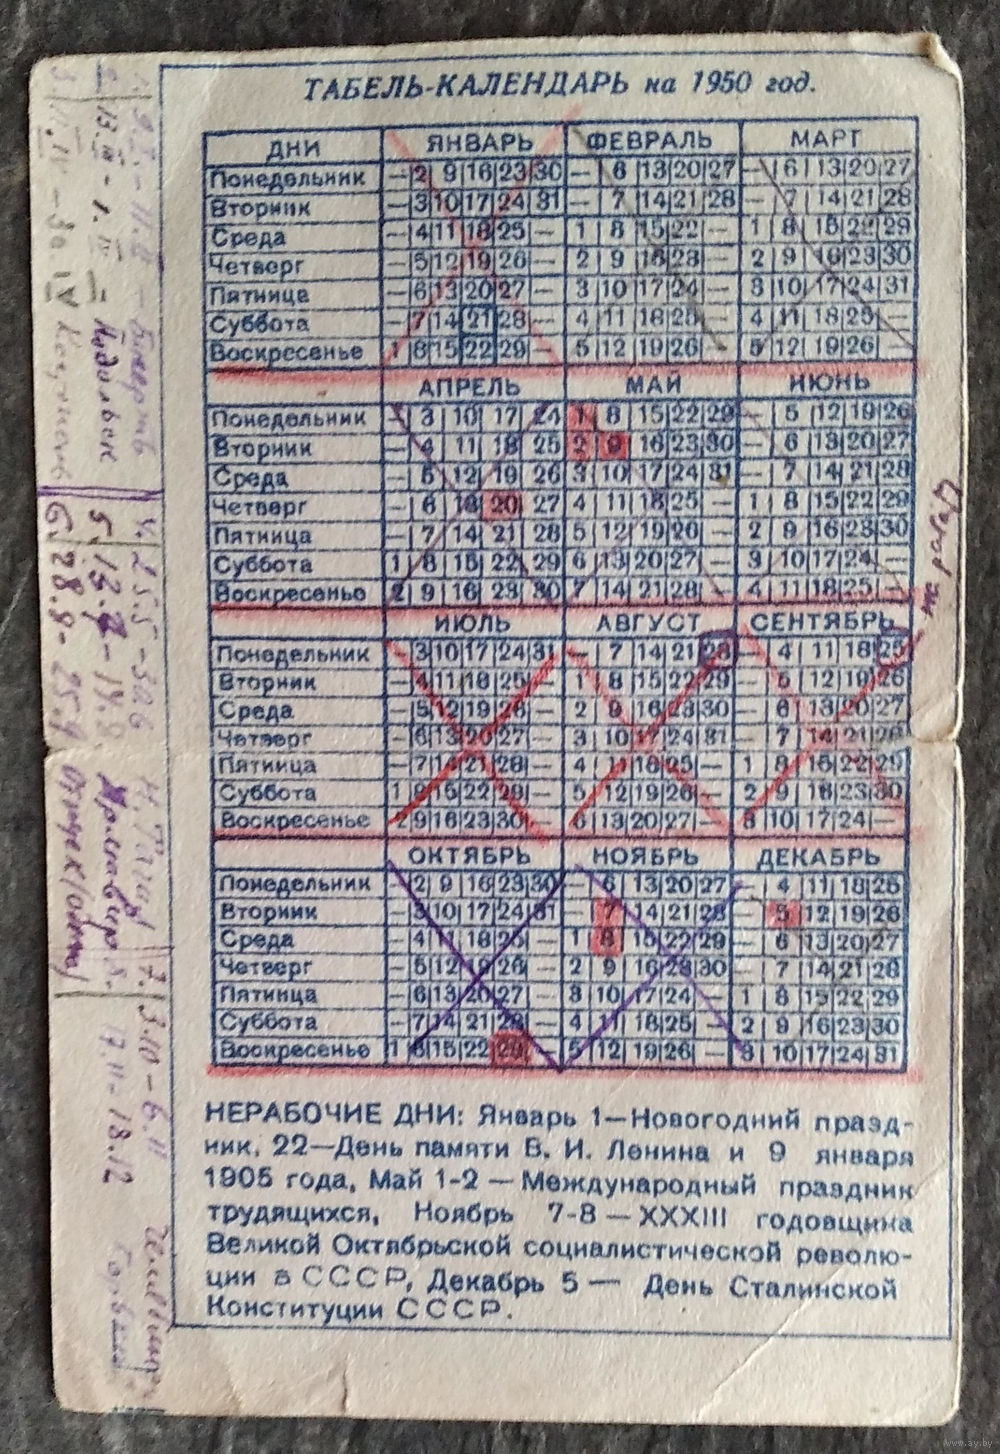 ТАБЕЛЬ-КАЛЕНДАРЬ на 1950 год.
ДНИ ЯНВАРЬ ФЕВРАЛЬ МАРТ
Понедельник — 2 9 16 23 30 — 6 13 20 27 — 6 13 20 27
Вторник — 3 10 17 24 31 — 7 14 21 28 — 7 14 21 28
Среда — 4 11 18 25 — 1 8 15 22 — 1 8 15 22 29
Четверг — 5 12 19 26 — 2 9 16 23 — 2 9 16 23 30
Пятница — 6 13 20 27 — 3 10 17 24 — 3 10 17 24 31
Суббота — 7 14 21 28 — 4 11 18 25 — 4 11 18 25 —
Воскресенье 1 8 15 22 29 — 5 12 19 26 — 5 12 19 26 —
АПРЕЛЬ МАЙ ИЮНЬ
Понедельник — 3 10 17 24 1 8 15 22 29 — 5 12 19 26
Вторник — 4 11 18 25 2 9 16 23 30 — 6 13 20 27
Среда — 5 12 19 26 3 10 17 24 31 — 7 14 21 28
Четверг — 6 13 20 27 4 11 18 25 — 1 8 15 22 29
Пятница — 7 14 21 28 5 12 19 26 — 2 9 16 23 30
Суббота 1 8 15 22 29 6 13 20 27 — 3 10 17 24 —
Воскресенье 2 9 16 23 30 7 14 21 28 — 4 11 18 25 —
ИЮЛЬ АВГУСТ СЕНТЯБРЬ
Понедельник — 3 10 17 24 31 — 7 14 21 28 — 4 11 18 25
Вторник — 4 11 18 25 — 1 8 15 22 29 — 5 12 19 26
Среда — 5 12 19 26 — 2 9 16 23 30 — 6 13 20 27
Четверг — 6 13 20 27 — 3 10 17 24 31 — 7 14 21 28
Пятница — 7 14 21 28 — 4 11 18 25 — 1 8 15 22 29
Суббота 1 8 15 22 29 — 5 12 19 26 — 2 9 16 23 30
Воскресенье 2 9 16 23 30 — 6 13 20 27 — 3 10 17 24 —
ОКТЯБРЬ НОЯБРЬ ДЕКАБРЬ
Понедельник — 2 9 16 23 30 — 6 13 20 27 — 4 11 18 25
Вторник — 3 10 17 24 31 — 7 14 21 28 — 5 12 19 26
Среда — 4 11 18 25 — 1 8 15 22 29 — 6 13 20 27
Четверг — 5 12 19 26 — 2 9 16 23 30 — 7 14 21 28
Пятница — 6 13 20 27 — 3 10 17 24 — 1 8 15 22 29
Суббота — 7 14 21 28 — 4 11 18 25 — 2 9 16 23 30
Воскресенье 1 8 15 22 29 — 5 12 19 26 — 3 10 17 24 31
НЕРАБОЧИЕ ДНИ: Январь 1—Новогодний празд-
ник, 22—День памяти В. И. Ленина и 9 января
1905 года, Май 1-2 — Международный праздник
трудящихся, Ноябрь 7-8 — XXXIII годовщина
Великой Октябрьской социалистической револю-
ции в СССР, Декабрь 5 — День Сталинской
Конституции СССР.
7. 3.10 – 6.11
17.11 – 18.12
6. 28.8 - 25.9
www.ay.by